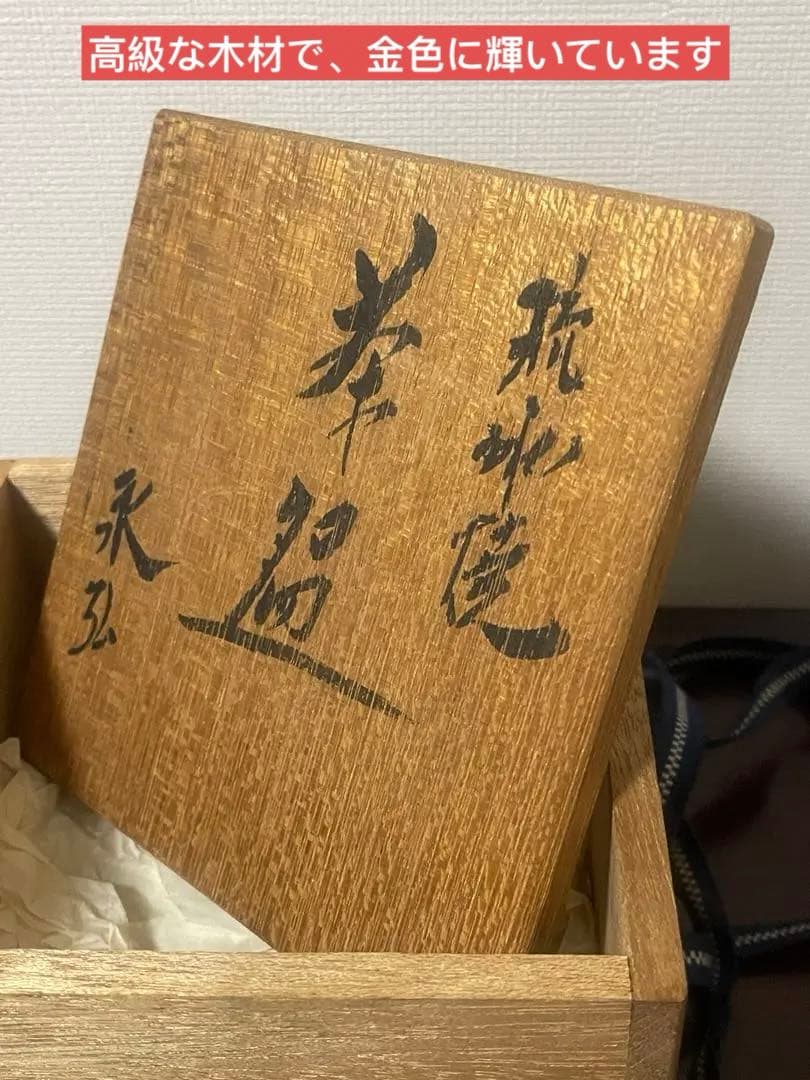 高級な木材で、金色に輝いています
焼
茶盌
永弘